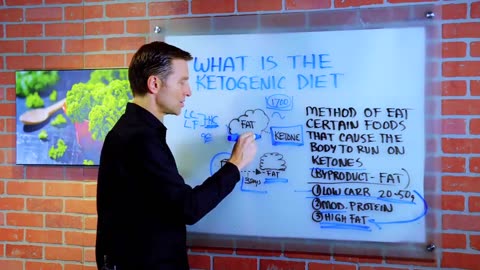 WHAT IS THE
KETOGENIC DIET
FAT
KETONE
FAT
3 DAYS
METHOD OF EAT
CERTAIN FOODS
THAT CAUSE THE
BODY TO RUN ON
KETONES
(BYPRODUCT-FAT)
① LOW CARB 20-50g
② MOD. PROTEIN
③ HIGH FAT